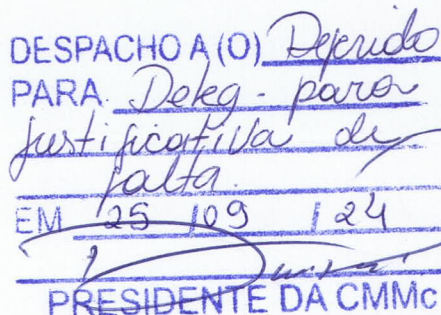 DESPACHO A (O) Deferido
PARA Deleg - para
justificativa de
falta.
EM 25 / 09 / 24
PRESIDENTE DA CMMc